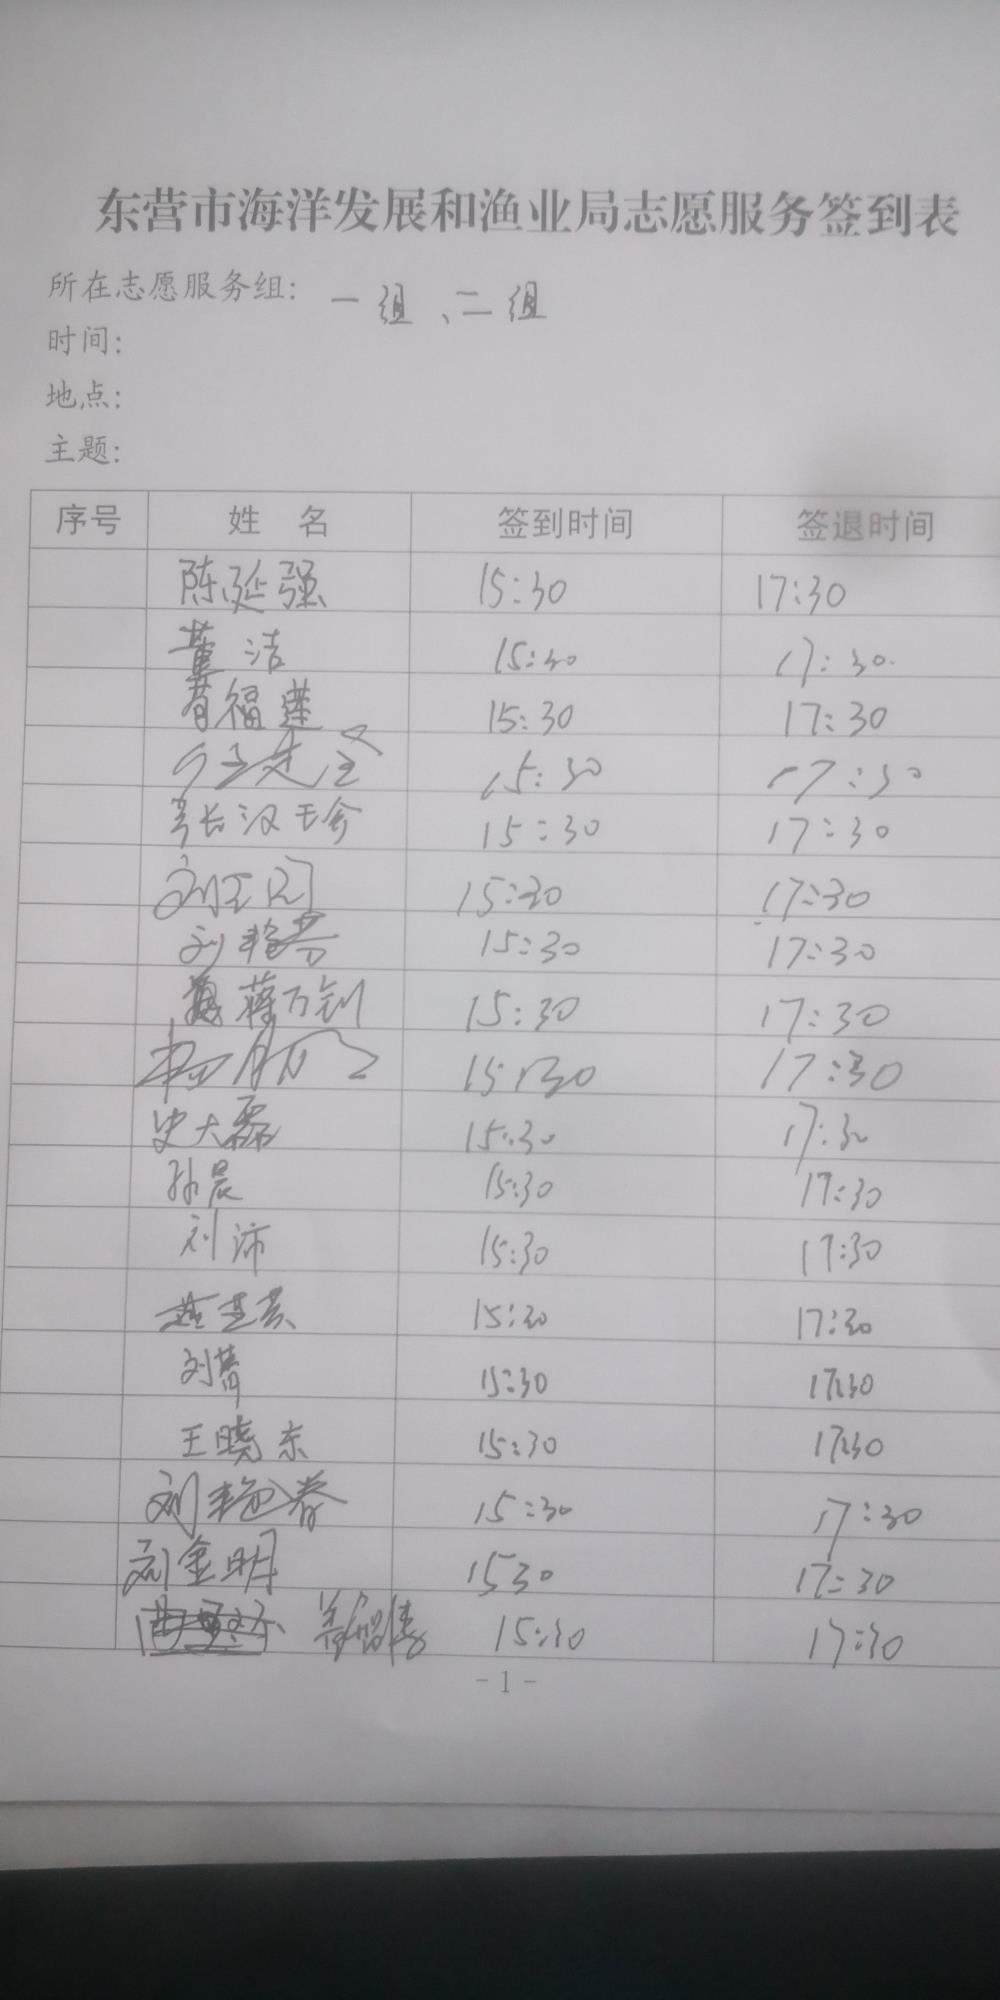 东营市海洋发展和渔业局志愿服务签到表
所在志愿服务组: 一组、二组
时间:
地点:
主题:
序号 姓名 签到时间 签退时间
陈延强 15:30 17:30
董洁 15:30 17:30.
福莲 15:30 17:30
15:30 17:30
15:30 17:30
刘 15:30 17:30
刘艳芳 15:30 17:30
蒋万钊 15:30 17:30
15:30 17:30
史大磊 15:30 17:30
孙晨 15:30 17:30
刘沛 15:30 17:30
15:30 17:30
刘菁 15:30 17:30
王晓东 15:30 17:30
刘艳春 15:30 17:30
刘金明 1530 17:30
15:30 17:30
- 1 -